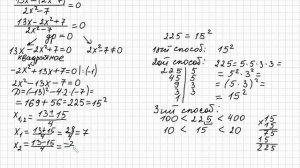 13x-(2x²-7)
=0
2x²-7
13x-2x²+7
=0
2x²-7
др=0
13x-2x²+7=0
2x²-7≠0
квадратное
-2x²+13x+7=0 |:(-1)
2x²-13x-7=0
D=(-13)²-4·2·(-7)=
=169+56=225=15²
x₁,₂=13±15/4
x₁=13+15/4=28/4=7
x₂=13-15/4=-2/4
225=15²
1ый способ: 15²
2ой способ: 225=5·5·3·3=
225 5
45 5
9 3
3 3
1
=5²·3²=
=(5·3)²=
=15²
3ий способ:
100<225<400
10<15<20
×15
15
75
15
225